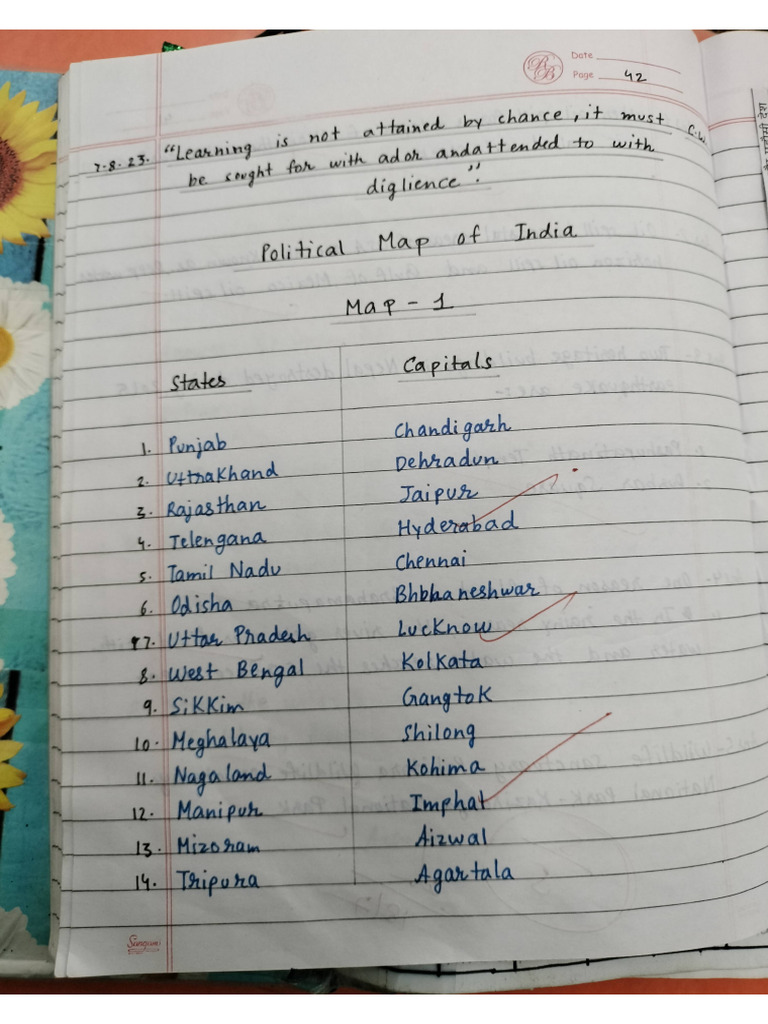 Date
Page 42
7.8.23. "Learning is not attained by chance, it must C.W.
be sought for with ador andattended to with
diglience".
Political Map of India
Map - 1
States Capitals
1. Punjab Chandigarh
2. Uttrakhand Dehradun
3. Rajasthan Jaipur
4. Telengana Hyderabad
5. Tamil Nadu Chennai
6. Odisha Bhbhaneshwar
7. Uttar Pradesh Lucknow
8. West Bengal Kolkata
9. Sikkim Gangtok
10. Meghalaya Shilong
11. Nagaland Kohima
12. Manipur Imphal
13. Mizoram Aizwal
14. Tripura Agartala
Sangam